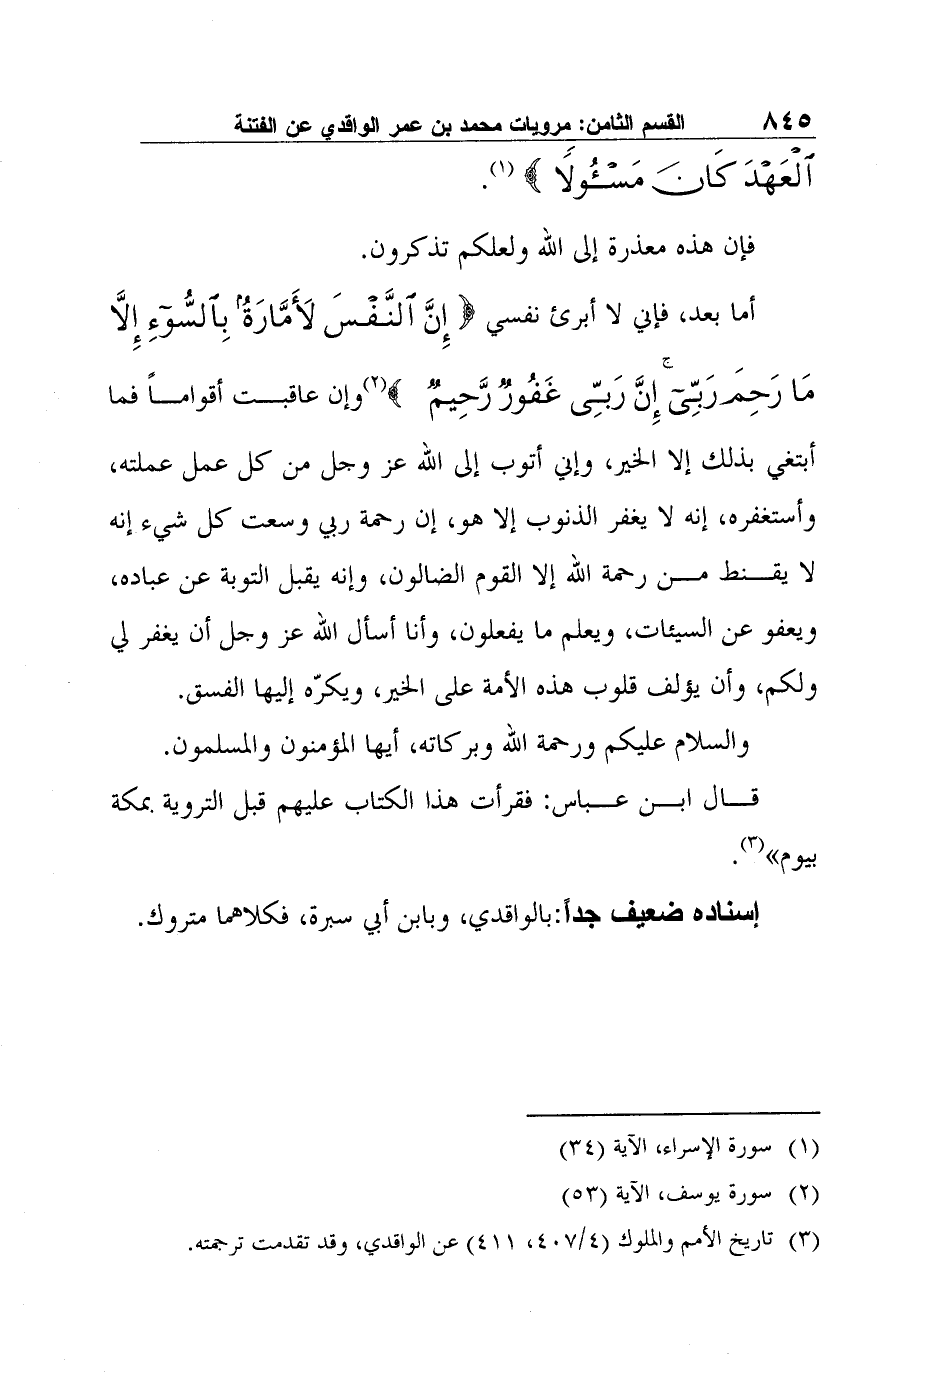 ٨٤٥ القسم الثامن: مرويات محمد بن عمر الواقدي عن الفتنة
ٱلْعَهْدَ كَانَ مَسْـُٔولًا ﴾ (١).
فإن هذه معذرة إلى الله ولعلكم تذكرون.
أما بعد، فإني لا أبرئ نفسي ﴿ إِنَّ ٱلنَّفْسَ لَأَمَّارَةٌۢ بِٱلسُّوٓءِ إِلَّا
مَا رَحِمَ رَبِّىٓ ۚ إِنَّ رَبِّى غَفُورٌ رَّحِيمٌ ﴾(٢) وإن عاقبت أقواماً فما
أبتغي بذلك إلا الخير، وإني أتوب إلى الله عز وجل من كل عمل عملته،
وأستغفره، إنه لا يغفر الذنوب إلا هو، إن رحمة ربي وسعت كل شيء إنه
لا يقنط من رحمة الله إلا القوم الضالون، وإنه يقبل التوبة عن عباده،
ويعفو عن السيئات، ويعلم ما يفعلون، وأنا أسأل الله عز وجل أن يغفر لي
ولكم، وأن يؤلف قلوب هذه الأمة على الخير، ويكرّه إليها الفسق.
والسلام عليكم ورحمة الله وبركاته، أيها المؤمنون والمسلمون.
قال ابن عباس: فقرأت هذا الكتاب عليهم قبل التروية بمكة
بيوم»(٣).
إسناده ضعيف جداً: بالواقدي، وبابن أبي سبرة، فكلاهما متروك.
(١) سورة الإسراء، الآية (٣٤)
(٢) سورة يوسف، الآية (٥٣)
(٣) تاريخ الأمم والملوك (٤/ ٤٠٧، ٤١١) عن الواقدي، وقد تقدمت ترجمته.